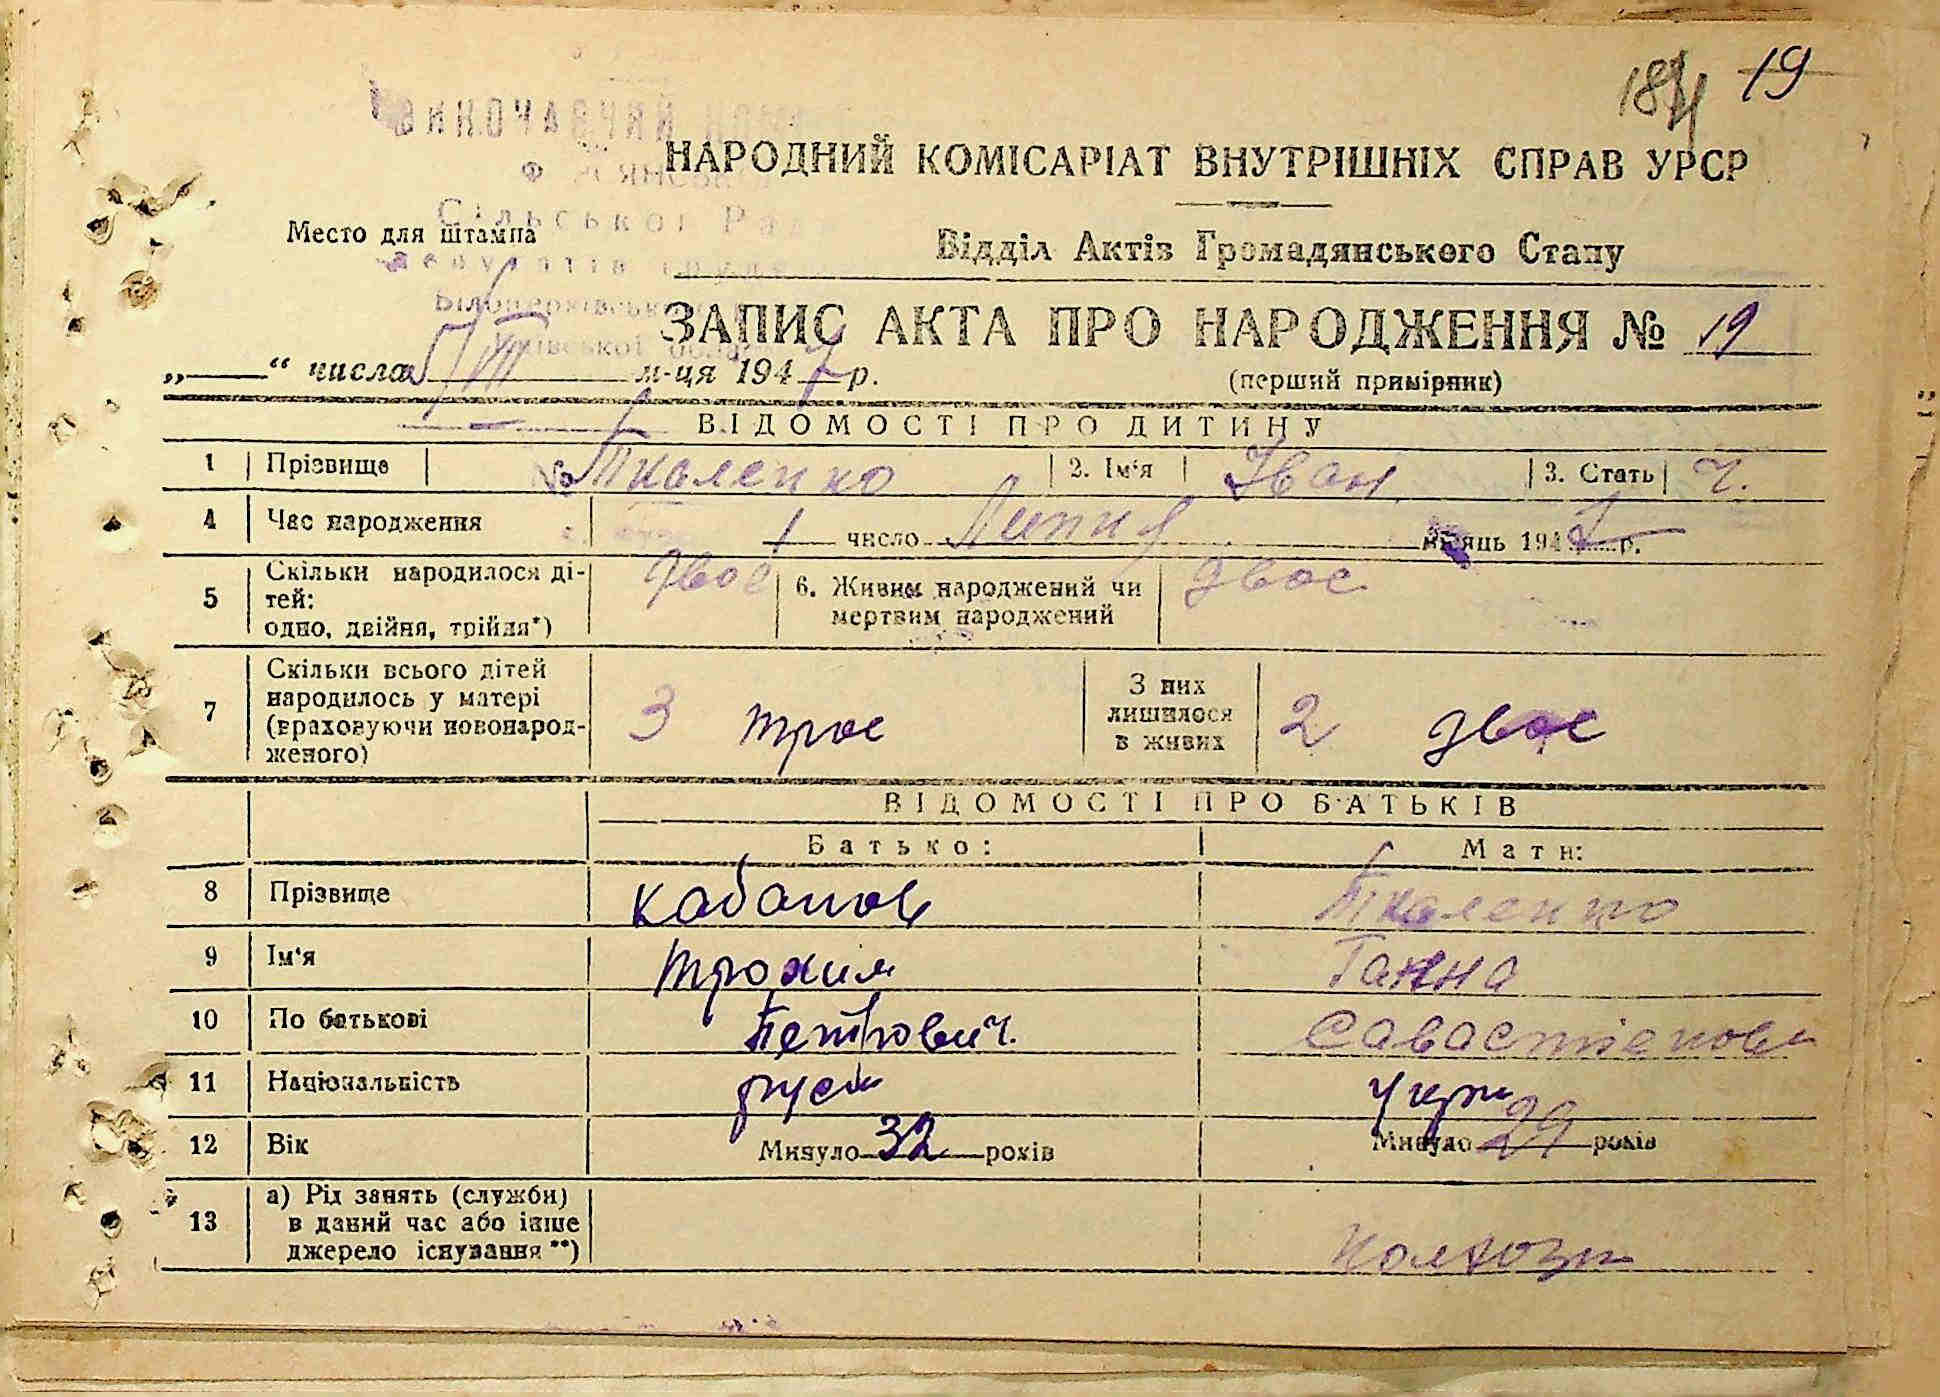 184 19
НАРОДНИЙ КОМІСАРІАТ ВНУТРІШНІХ СПРАВ УРСР
Сільської Рад
Место для штампа
Відділ Актів Громадянського Стану
Білоцерківськ
ЗАПИС АКТА ПРО НАРОДЖЕННЯ № 19
Київської област
„ “ числа 5/VII м-ця 1947 р.
(перший примірник)
ВІДОМОСТІ ПРО ДИТИНУ
1 Прізвище Ткаленко 2. Ім'я Іван 3. Стать ч.
4 Час народження 1 число Липня місяць 1947 р.
5 Скільки народилося ді-
тей:
одно, двійня, трійля*) двоє 6. Живим народжений чи
мертвим народжений двоє
7 Скільки всього дітей
народилось у матері
(враховуючи новонарод-
женого) 3 троє З них
лишилося
в живих 2 двоє
ВІДОМОСТІ ПРО БАТЬКІВ
Батько: Мати:
8 Прізвище Кабанов Ткаленко
9 Ім'я Трохим Ганна
10 По батькові Петрович. Савастіанов
11 Національність руск укр
12 Вік Минуло 32 років Минуло 29 років
13 а) Рід занять (служби)
в даний час або інше
джерело існування **) колхозн